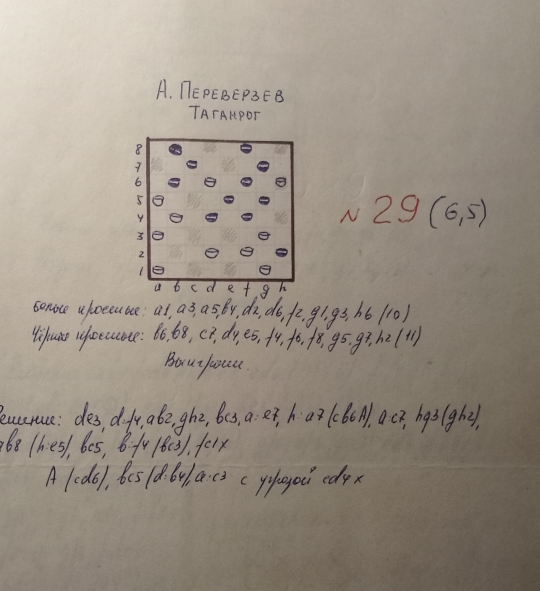 А. ПЕРЕВЕРЗЕВ
ТАГАНРОГ
8
7
6
5
4
3
2
1
a b c d e f g h
№ 29 (6,5)
Белые простые: a1, a3, a5, b4, d2, d6, f2, g1, g3, h6 (10)
Чёрные простые: b6, b8, c7, d4, e5, f4, f6, f8, g5, g7, h2 (11)
Выигрыш.
Решение: de3, d:f4, ab2, gh2, bc3, a:e7, h:a7 (cb6A), a:c7, hg3 (gh2),
ab8 (h:e5), bc5, b:f4 (bc3), fc1x
A (cd6), bc5 (d:b4), a:c3 с угрозой cd4x